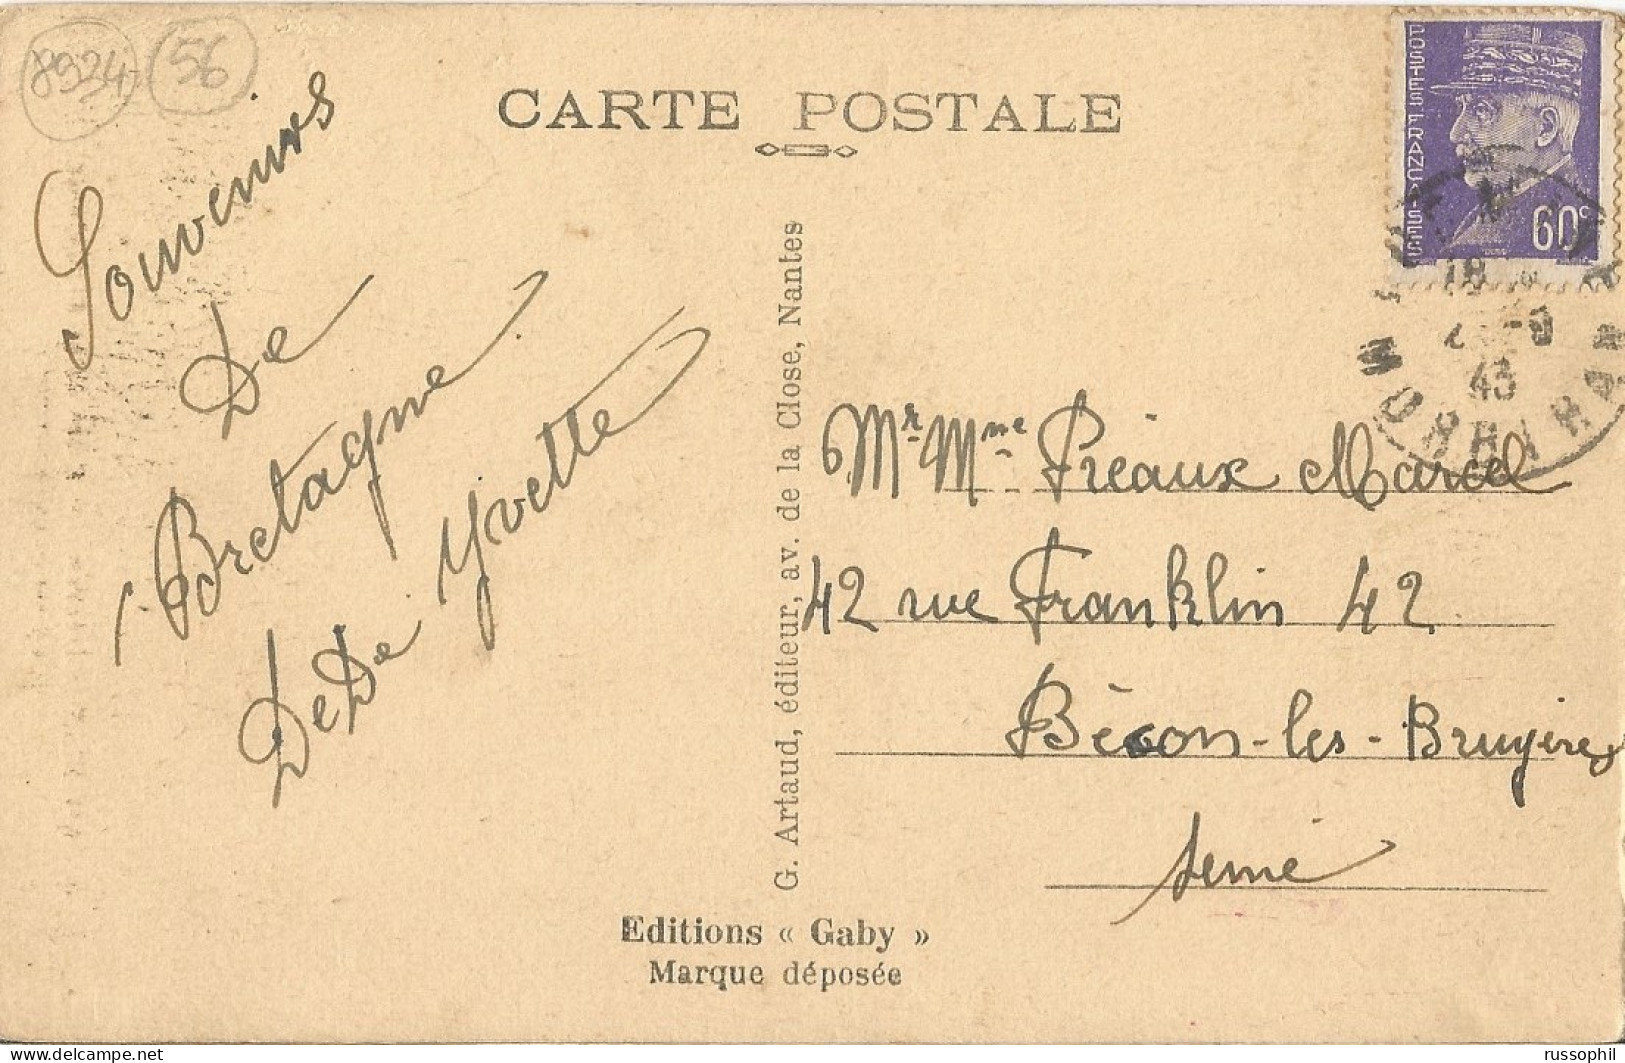 8934
56
CARTE POSTALE
POSTES FRANÇAISES
60c
18
43
MORBIHAN
Souvenirs
De
Bretagne
DeDe Yvette
G. Artaud, éditeur, av. de la Close, Nantes
Mr Mme Préaux Marcel
42 rue Franklin 42
Bécon-les-Bruyères
Seine
Editions « Gaby »
Marque déposée
www.delcampe.net
russophil